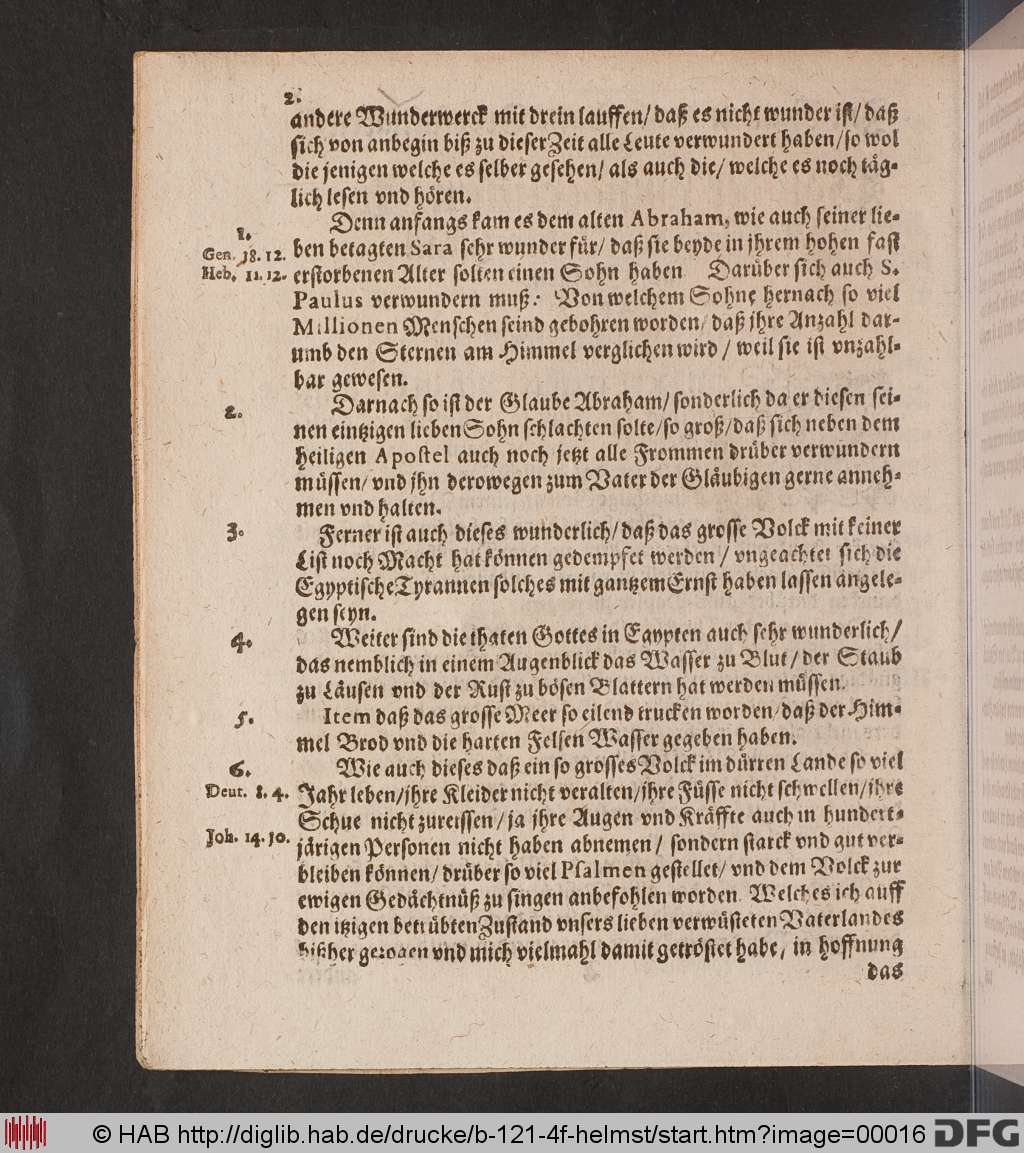 2.
andere Wunderwerck mit drein lauffen/ daß es nicht wunder ist/ daß
sich von anbegin biß zu dieser Zeit alle Leute verwundert haben/ so wol
die jenigen welche es selber gesehen/ als auch die/ welche es noch täg-
lich lesen vnd hören.
1.
Denn anfangs kam es dem alten Abraham, wie auch seiner lie-
Gen. 18. 12.
ben betagten Sara sehr wunder für/ daß sie beyde in jhrem hohen fast
Heb. 11. 12.
erstorbenen Alter solten einen Sohn haben Darüber sich auch S.
Paulus verwundern muß: Von welchem Sohne hernach so viel
Millionen Menschen seind gebohren worden/ daß jhre Anzahl dar-
umb den Sternen am Himmel verglichen wird / weil sie ist vnzahl-
bar gewesen.
2.
Darnach so ist der Glaube Abraham/ sonderlich da er diesen sei-
nen eintzigen lieben Sohn schlachten solte/ so groß/ daß sich neben dem
heiligen Apostel auch noch jetzt alle Frommen drüber verwundern
müssen/ vnd jhn derowegen zum Vater der Gläubigen gerne anneh-
men vnd halten.
3.
Ferner ist auch dieses wunderlich/ daß das grosse Volck mit keiner
List noch Macht hat können gedempfet werden / vngeachtet sich die
Egyptische Tyrannen solches mit gantzem Ernst haben lassen angele-
gen seyn.
4.
Weiter sind die thaten Gottes in Egypten auch sehr wunderlich/
das nemblich in einem Augenblick das Wasser zu Blut/ der Staub
zu Läusen vnd der Rust zu bösen Blattern hat werden müssen.
5.
Item daß das grosse Meer so eilend trucken worden/ daß der Him-
mel Brod vnd die harten Felsen Wasser gegeben haben.
6.
Wie auch dieses daß ein so grosses Volck im dürren Lande so viel
Deut. 8. 4.
Jahr leben/ jhre Kleider nicht veralten/ jhre Füsse nicht schwellen/ jhre
Schue nicht zureissen/ ja jhre Augen vnd Kräffte auch in hundert-
Joh. 14. 10.
järigen Personen nicht haben abnemen/ sondern starck vnd gut ver-
bleiben können/ drüber so viel Psalmen gestellet/ vnd dem Volck zur
ewigen Gedächtnüß zu singen anbefohlen worden. Welches ich auff
den itzigen betrübten Zustand vnsers lieben verwüsteten Vaterlandes
bißher gezogen vnd mich vielmahl damit getröstet habe, in hoffnung
das
© HAB http://diglib.hab.de/drucke/b-121-4f-helmst/start.htm?image=00016
DFG